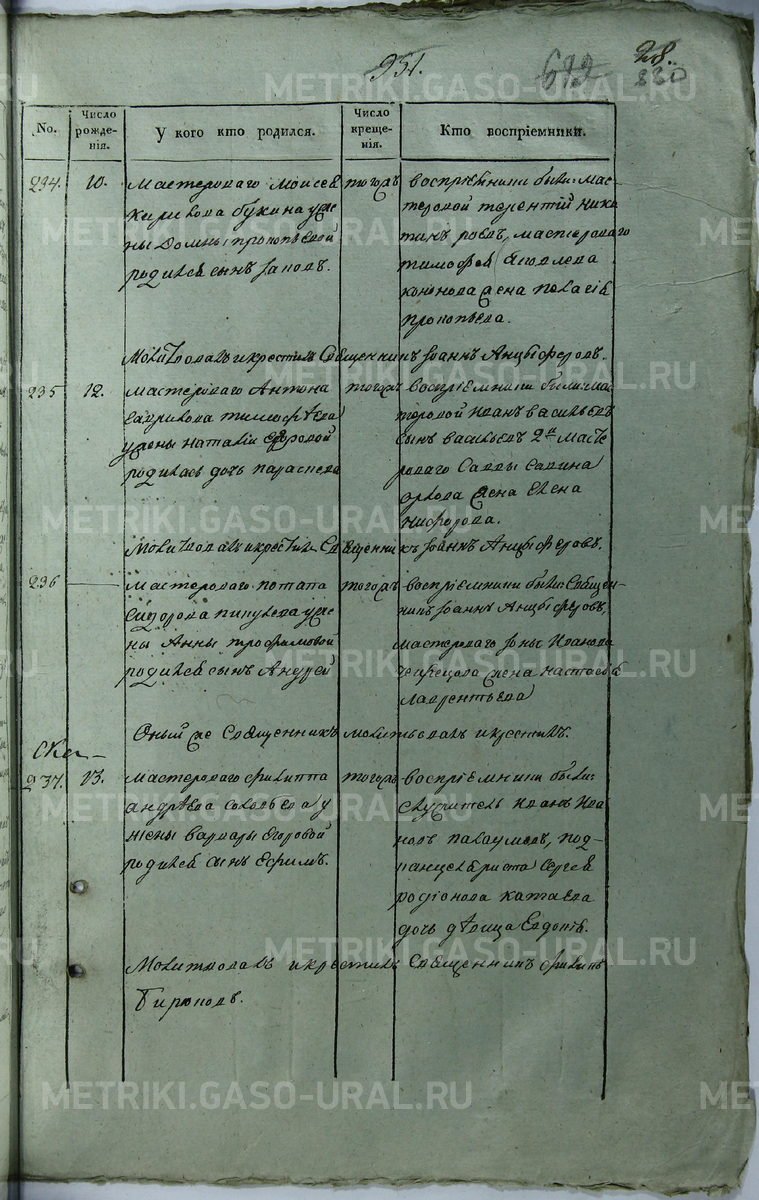 931.
28.
No.
Число рожде-нія.
У кого кто родился.
Число креще-нія.
Кто воспріемники.
234.
10.
Мастероваго Моисея
Кирилова Букина у же-
ны Домны Прокопьевой
родился сынъ Іаковъ.
тогожъ
воспріемники были: мас-
теровой Терентій Ники-
тинъ мастероваго
Тимофея Яковлева
Кононова жена Пелагія
Прокопьева.
Молитвовалъ и крестилъ Священникъ Іоаннъ Анцыферовъ.
235
12.
мастероваго Антона
Гаврилова Тимофѣева
у жены Наталіи Егоровой
родилась дочь Параскева
тогожъ
воспріемники были: мас-
теровой Иванъ Васильевъ
сынъ Васильевъ 2й масте-
роваго Саввы Савина
жена Елена
Никифорова.
Молитвовалъ и крестилъ Священникъ Іоаннъ Анцыферовъ.
236
мастероваго Потапа
Сидорова Пикулева у же-
ны Анны Трофимовой
родился сынъ Андрей
тогожъ
воспріемники были: Священ-
никъ Іоаннъ Анцыферовъ,
мастероваго Іоны Иванова
жена Настасья
Лаврентьева
Оный же Священникъ молитвовалъ и крестилъ.
237.
13.
мастероваго Филиппа
Андрѣева Соловьева у
жены Варвары Егоровой
родился сынъ Ефимъ.
тогожъ
воспріемники были:
служитель Иванъ Ива-
новъ Паклумовъ, под-
канцеляриста Сергея
Родіонова Катаева
дочь дѣвица Евдокія.
Молитвовалъ и крестилъ Священникъ Филиппъ
Бирюковъ.
METRIKI.GASO-URAL.RU